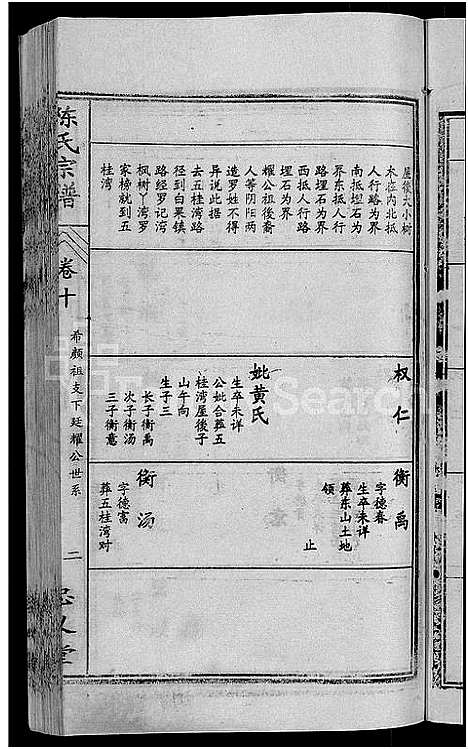 屋後大小树
木庄内北抵
人行路为界
南抵埋石为
界东抵人行
路埋石为界
西抵人行路
埋石为界
耀公祖後裔
人等阴阳两
造罗姓不得
异说此据
去五桂湾路
径到白果镇
路经罗记湾
枫树丫湾罗
家榜就到五
桂湾
权仁
妣黄氏
生卒未详
公妣合葬五
桂湾屋後子
山午向
生子三
长子衡禹
次子衡汤
三子衡意
衡禹
字德春
生卒未详
葬东山土地
领 止
衡汤
字德富
葬五桂湾对
陈氏宗谱
卷十
希颜祖支下廷耀公世系
二
忠义堂
Search